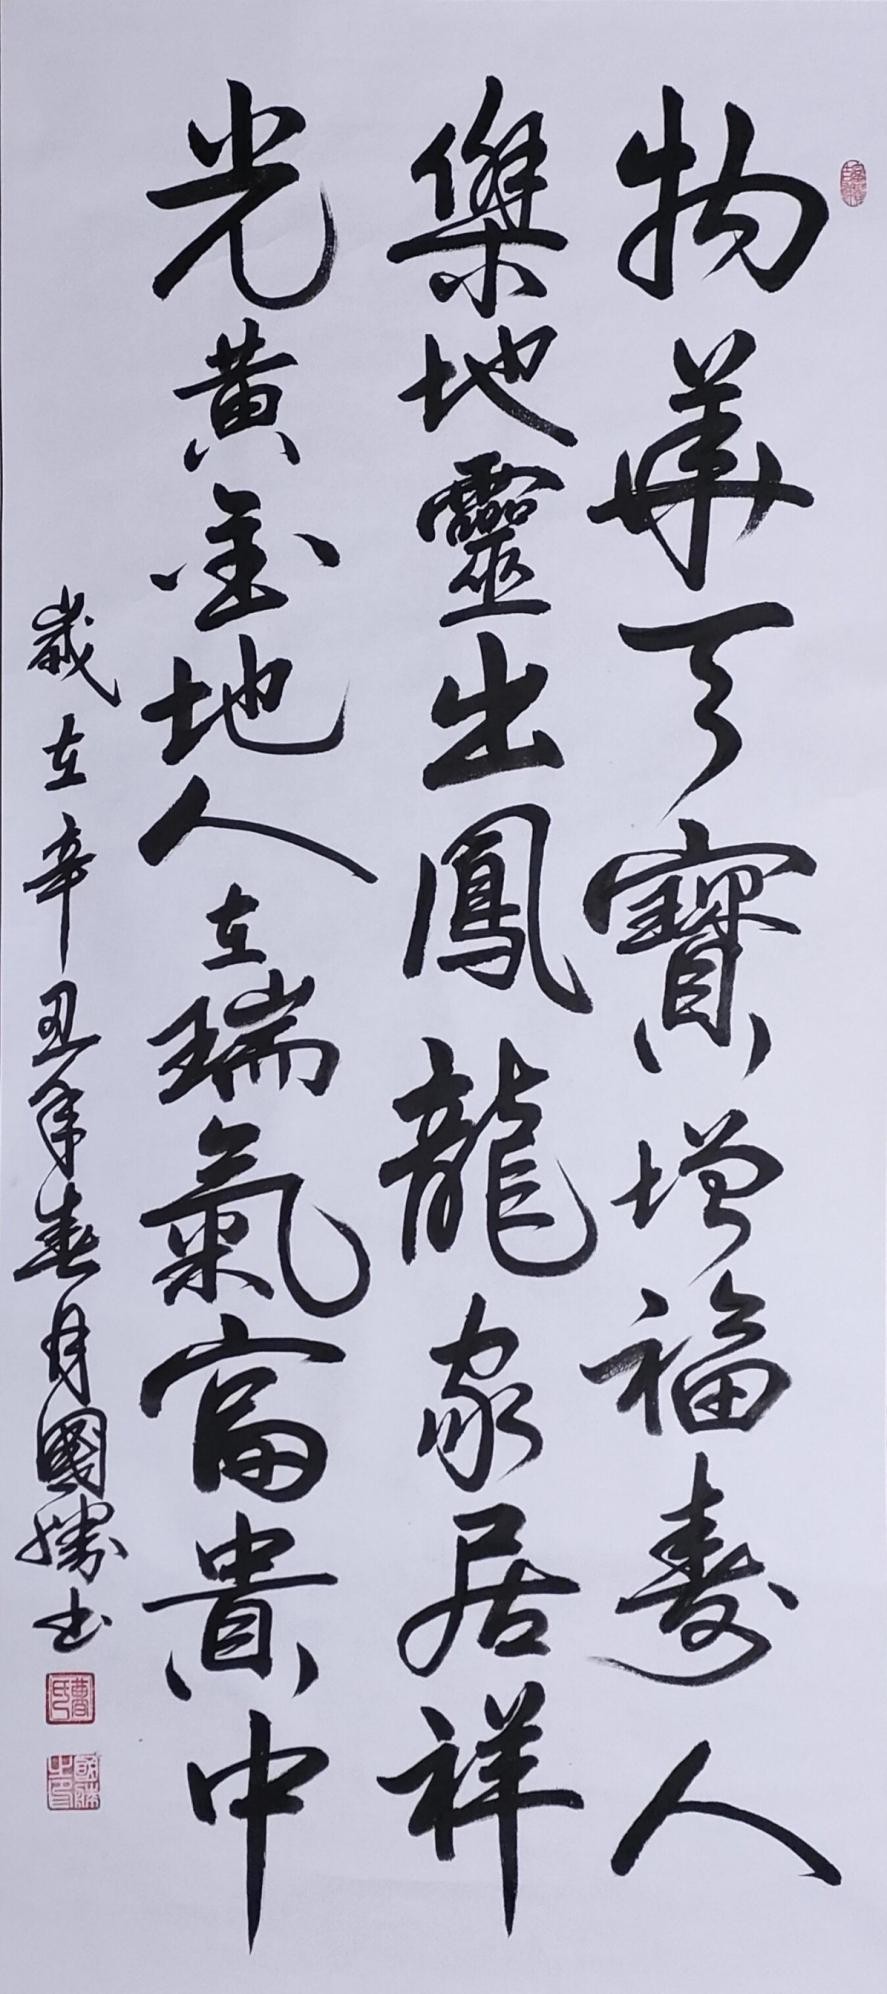 物華天寶增福壽人
傑地靈出鳳龍家居祥
光黃金地人在瑞氣富貴中
歲在辛丑年春月國勝書
曹印
國勝之印